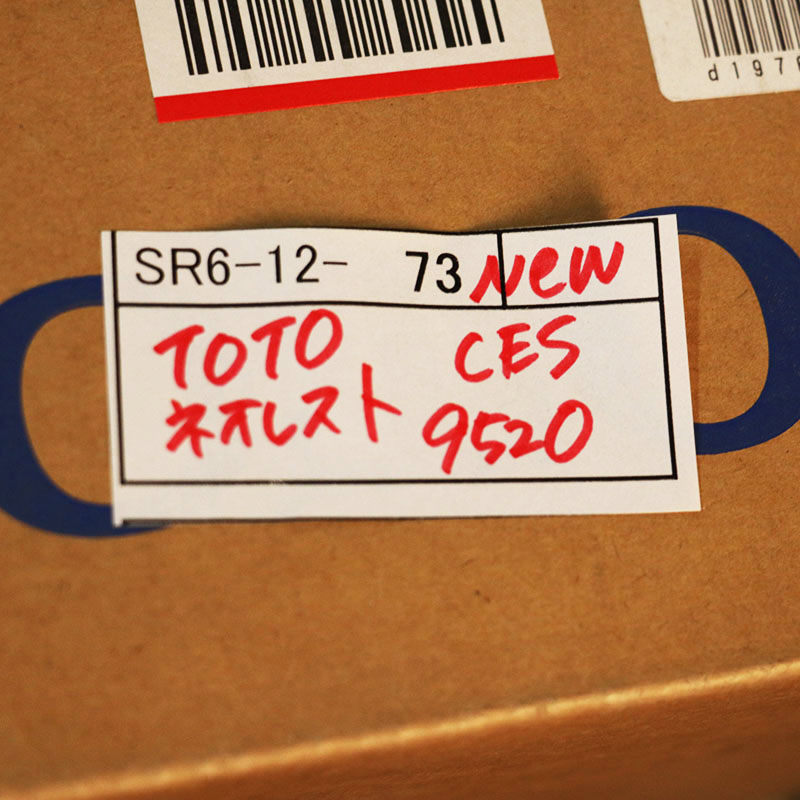 d1978
SR6-12- 73 New
TOTO CES
ネオレスト 9520